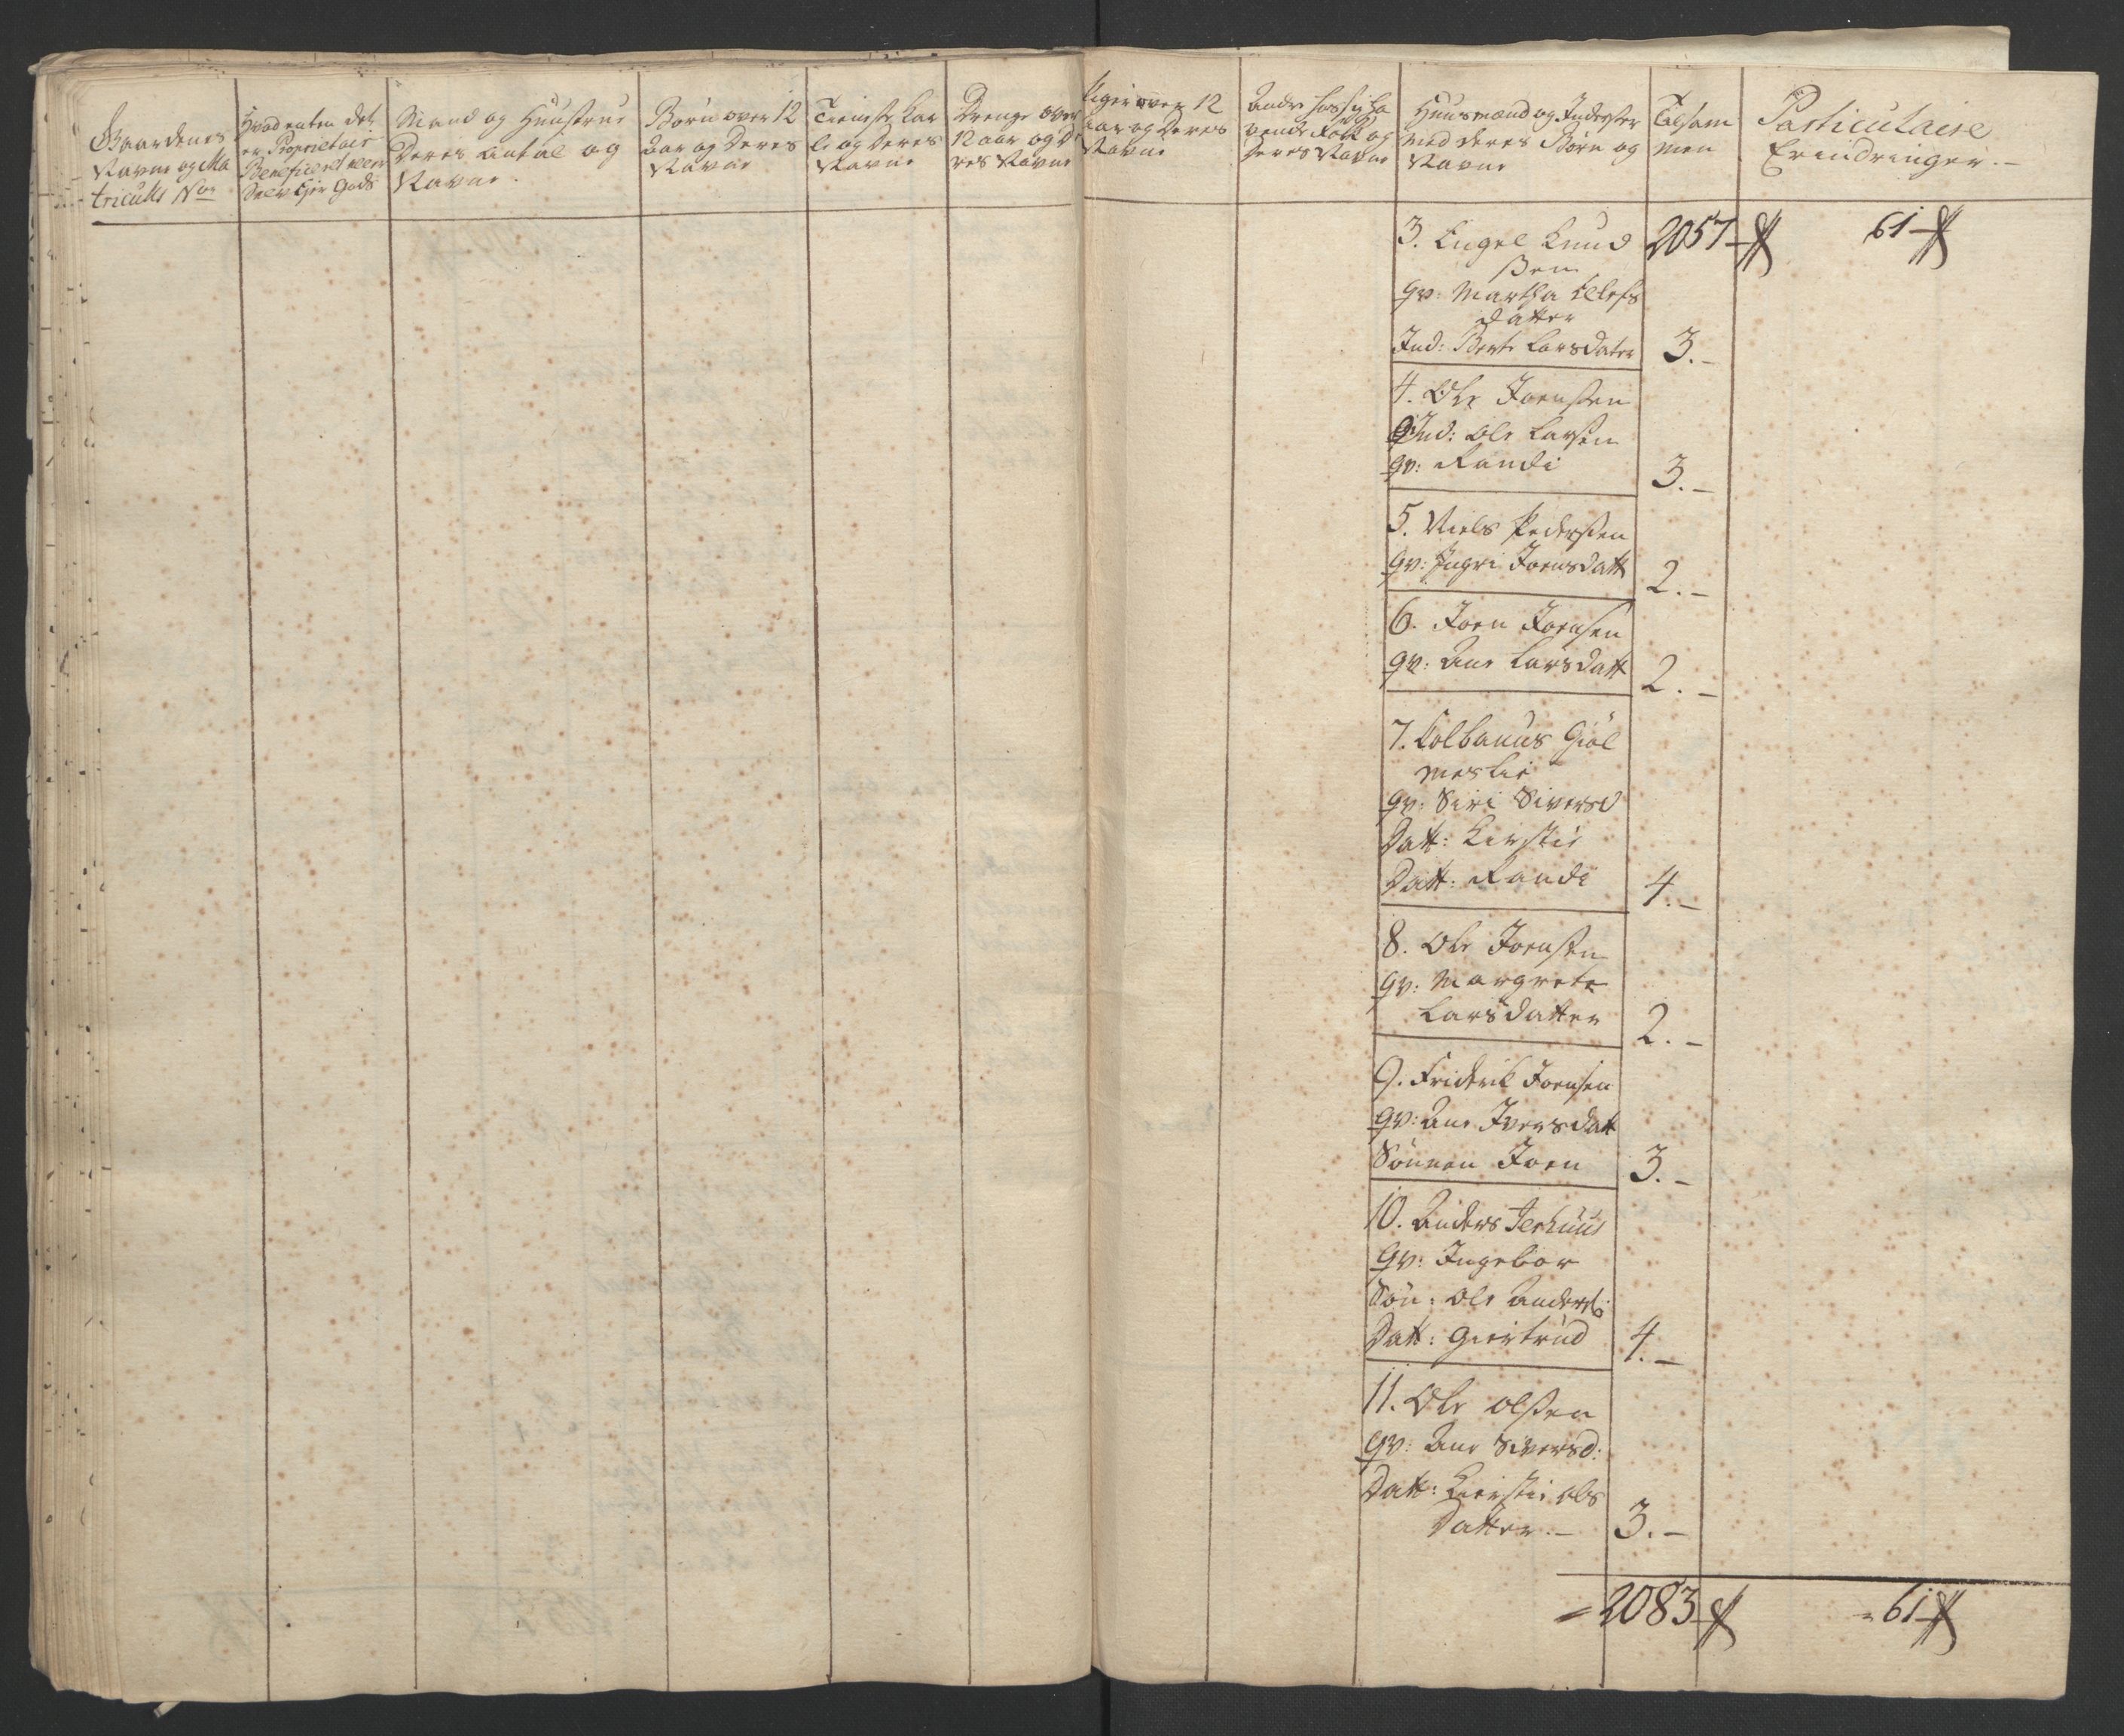 Gaardenes
Navne og Ma
triculs No
Hvad enten det
er Proprietair
Beneficeret eller
Selv Ejer Gods
Mand og Huustrue
Deres Antal og
Navne.
Børn over 12
Aar og Deres
Navne
Tieniste Kar
le og Deres
Navne
Drenge over
12 aar og De
res Navne
Piger over 12
aar og Deres
Navne
Andre hos sig ha
vende Folk og
Deres Navne
Huusmænd og Inderster
med deres Børn og
Navne
Tilsam
men
Particulaire
Erindringer.-
3. Engel Knud 2057 61
ßen
gv: Martha Olefs
datter
Ind: Berte Larsdater 3.-
4. Ole Joenßen
Ind: Ole Larsen
gv: Randi 3.-
5. Niels Pederßen
gv: Ingri Joensdatt 2.-
6. Joen Joensen
gv: Ane Larsdatt 2.-
7. Colbanus Giøl
meslie
gv: Siri Siversd
Datt: Kirstie
Datt: Randi 4.-
8. Ole Joensen
gv: Margrete
Larsdatter 2.-
9. Friderik Joensen
gv: Ane Iversdat
Sønnen Joen 3.-
10. Anders
gv: Ingebor
Søn: Ole Anders:
Datt: Giertrud 4.-
11. Ole Olßen
gv: Ane Siversd:
Datt: Kierstie Ols
Datter.- 3.-
=2083 =61